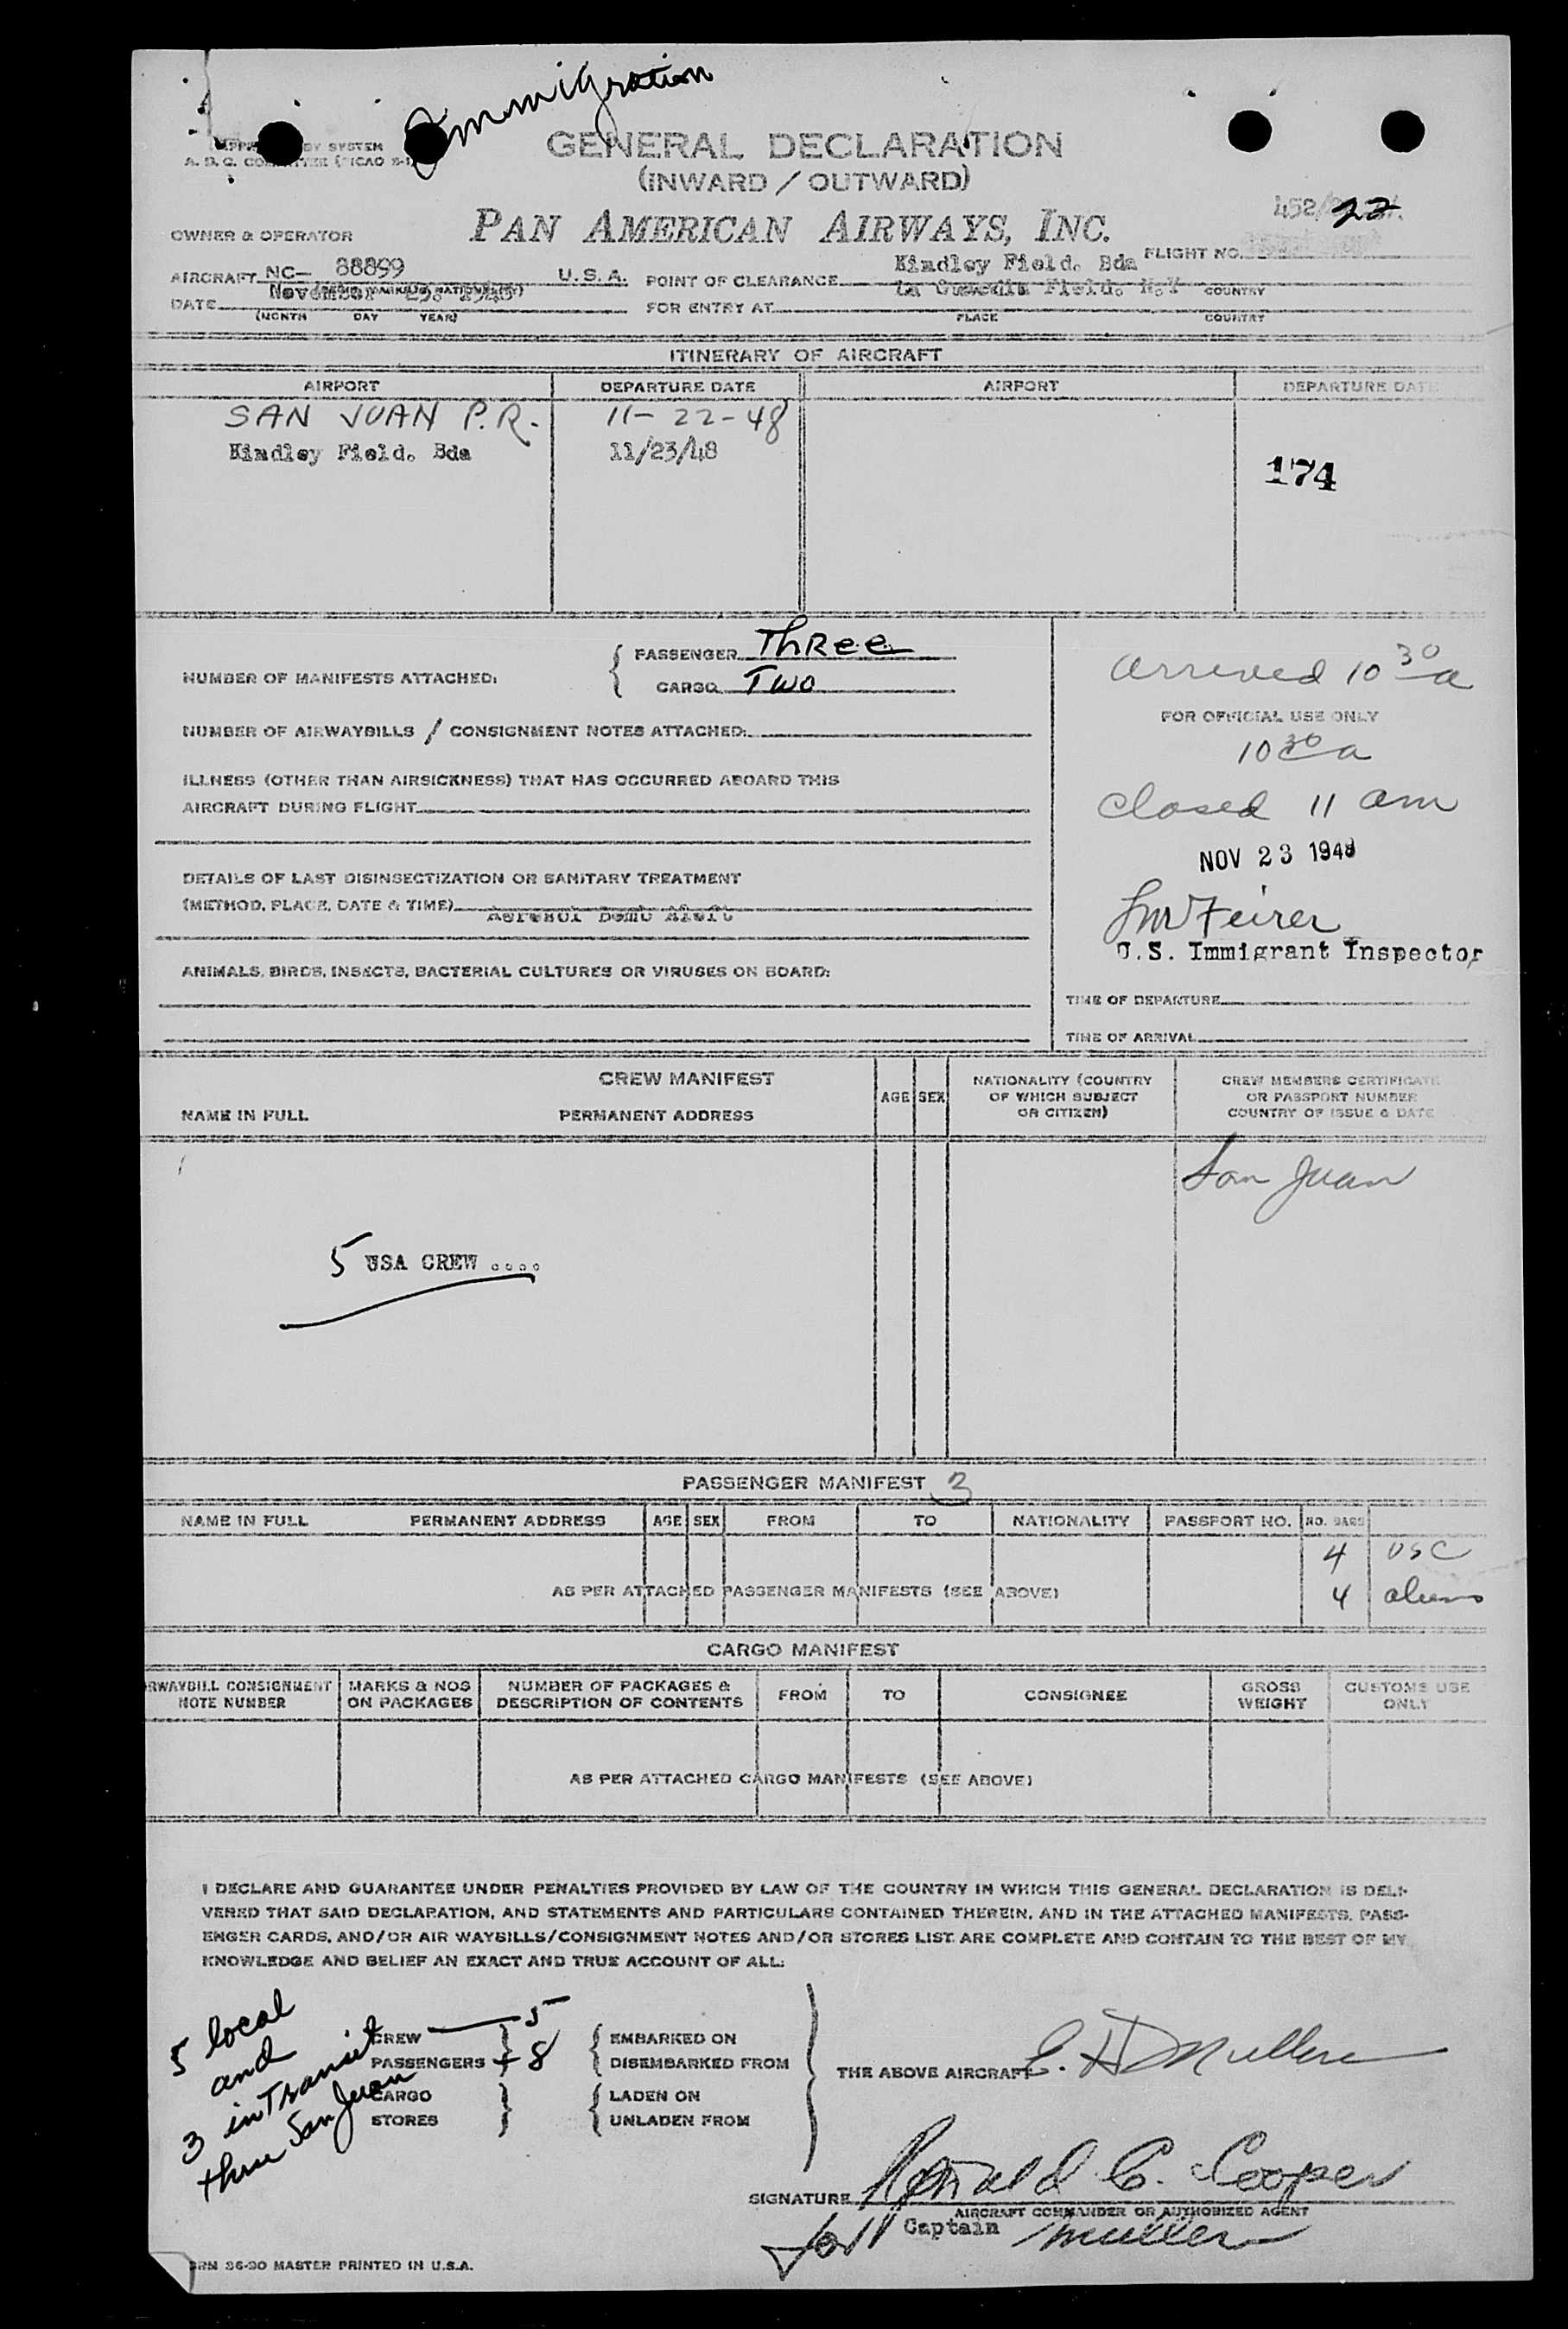 Immigration
BY SYSTEM
GENERAL DECLARATION
(INWARD / OUTWARD)
PAN AMERICAN AIRWAYS, INC.
452/ 22
OWNER & OPERATOR
FLIGHT NO.
AIRCRAFT NC- 88899 U.S.A. POINT OF CLEARANCE Kindley Field. Bda
COUNTRY
DATE November 23. 1948 FOR ENTRY AT La Guardia Field. N.Y
(MONTH DAY YEAR) PLACE COUNTRY
ITINERARY OF AIRCRAFT
AIRPORT DEPARTURE DATE AIRPORT DEPARTURE DATE
SAN JUAN P.R. 11-22-48
Kindley Field. Bda 11/23/48
174
NUMBER OF MANIFESTS ATTACHED: PASSENGER Three
CARGO Two
arrived 10 30 a
FOR OFFICIAL USE ONLY
NUMBER OF AIRWAYBILLS / CONSIGNMENT NOTES ATTACHED:
10 30 a
ILLNESS (OTHER THAN AIRSICKNESS) THAT HAS OCCURRED ABOARD THIS
AIRCRAFT DURING FLIGHT
closed 11 am
NOV 23 1948
DETAILS OF LAST DISINSECTIZATION OR SANITARY TREATMENT
(METHOD, PLACE, DATE & TIME) Aerosol Bomb Aloft
Feirer
U.S. Immigrant Inspector
ANIMALS, BIRDS, INSECTS, BACTERIAL CULTURES OR VIRUSES ON BOARD:
TIME OF DEPARTURE
TIME OF ARRIVAL
CREW MANIFEST
NAME IN FULL PERMANENT ADDRESS AGE SEX NATIONALITY (COUNTRY OF WHICH SUBJECT OR CITIZEN) CREW MEMBERS CERTIFICATE OR PASSPORT NUMBER COUNTRY OF ISSUE & DATE
San Juan
5 USA CREW ....
PASSENGER MANIFEST 3
NAME IN FULL PERMANENT ADDRESS AGE SEX FROM TO NATIONALITY PASSPORT NO. NO. BAGS
4 USC
AS PER ATTACHED PASSENGER MANIFESTS (SEE ABOVE) 4 aliens
CARGO MANIFEST
RWAYBILL CONSIGNMENT NOTE NUMBER MARKS & NOS ON PACKAGES NUMBER OF PACKAGES & DESCRIPTION OF CONTENTS FROM TO CONSIGNEE GROSS WEIGHT CUSTOMS USE ONLY
AS PER ATTACHED CARGO MANIFESTS (SEE ABOVE)
I DECLARE AND GUARANTEE UNDER PENALTIES PROVIDED BY LAW OF THE COUNTRY IN WHICH THIS GENERAL DECLARATION IS DELI-
VERED THAT SAID DECLARATION, AND STATEMENTS AND PARTICULARS CONTAINED THEREIN, AND IN THE ATTACHED MANIFESTS, PASS-
ENGER CARDS, AND/OR AIR WAYBILLS/CONSIGNMENT NOTES AND/OR STORES LIST ARE COMPLETE AND CONTAIN TO THE BEST OF MY
KNOWLEDGE AND BELIEF AN EXACT AND TRUE ACCOUNT OF ALL:
5 local
and
3 in Transit
thru San Juan
CREW 5 EMBARKED ON
PASSENGERS + 8 DISEMBARKED FROM
THE ABOVE AIRCRAFT E. H Muller
CARGO LADEN ON
STORES UNLADEN FROM
SIGNATURE Ronald C. Cooper
AIRCRAFT COMMANDER OR AUTHORIZED AGENT
for Captain Muller
36-90 MASTER PRINTED IN U.S.A.